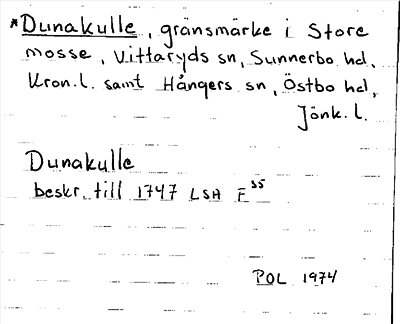 *Dunakulle, gränsmärke i Store
mosse, Vittaryds sn, Sunnerbo hd,
Kron.l. samt Hångers sn, Östbo hd,
Jönk.l.
Dunakulle
beskr. till 1747 LSA F35
POL 1974